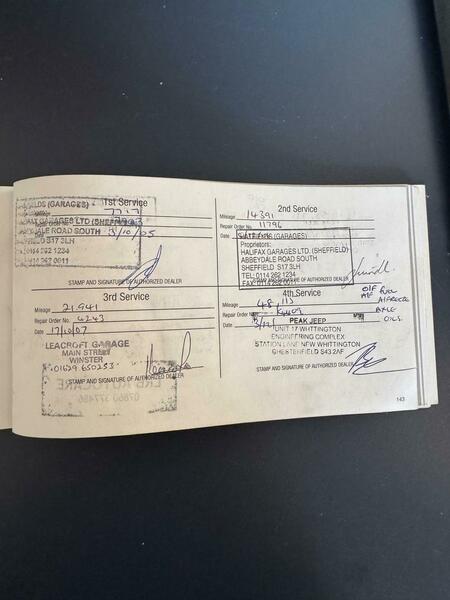 1st Service
(GARAGES)
GARAGES LTD (SHEFFIELD)
ROAD SOUTH 3/10/05
S17 3LH
0114 262 1234
STAMP AND SIGNATURE OF AUTHORIZED DEALER
2nd Service
Mileage 14391
Repair Order No. 11796
Date
(GARAGES)
Proprietors:
HALIFAX GARAGES LTD. (SHEFFIELD)
ABBEYDALE ROAD SOUTH
SHEFFIELD S17 3LH
TEL: 0114 262 1234
SIGNATURE OF AUTHORIZED DEALER
3rd Service
Mileage 21,941
Repair Order No. 4243
Date 17/10/07
LEACROFT GARAGE
MAIN STREET
WINSTER
01629 650253
STAMP AND SIGNATURE OF AUTHORIZED DEALER
4th Service
Mileage 48,113
OIF FUEL
A/F
AXLE
OILS
PEAK JEEP
UNIT 17 WHITTINGTON
ENGINEERING COMPLEX
STATION LANE NEW WHITTINGTON
CHESTERFIELD S43 2AF
STAMP AND SIGNATURE OF AUTHORIZED DEALER
143